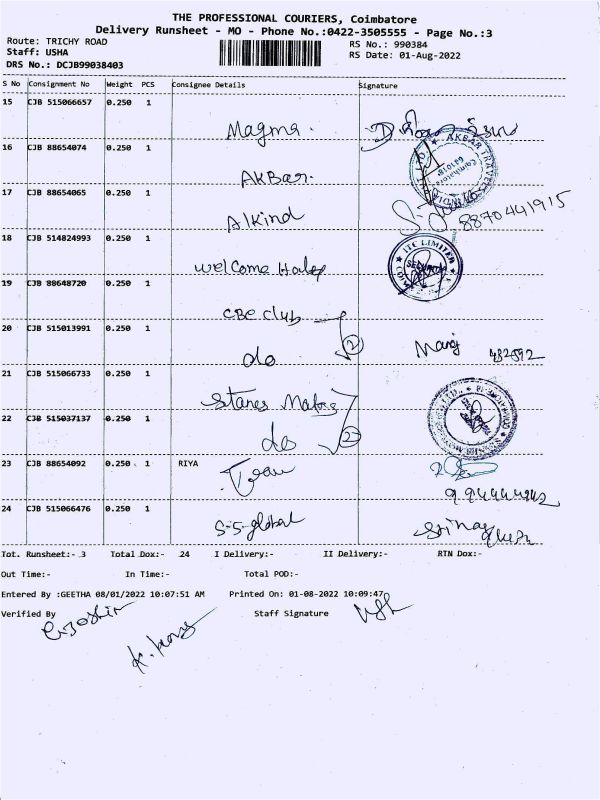 THE PROFESSIONAL COURIERS, Coimbatore
Delivery Runsheet - MO - Phone No.:0422-3505555 - Page No.:3
Route: TRICHY ROAD
RS No.: 990384
Staff: USHA
RS Date: 01-Aug-2022
DRS No.: DCJB99038403
S No Consignment No Weight PCS Consignee Details Signature
15 CJB 515066657 0.250 1
Magma.
16 CJB 88654074 0.250 1
AKBar.
AKBAR TRAVELS
17 CJB 88654065 0.250 1
Alkind
8870441915
18 CJB 514824993 0.250 1
welcome
ITC LIMITED
19 CJB 88648720 0.250 1
CBE club
20 CJB 515013991 0.250 1
do 2
Manoj
21 CJB 515066733 0.250 1
Stanes
22 CJB 515037137 0.250 1
do 2
23 CJB 88654092 0.250 1 RIYA
24 CJB 515066476 0.250 1
S-S-global
Tot. Runsheet:- 3 Total Dox:- 24 I Delivery:- II Delivery:- RTN Dox:-
Out Time:- In Time:- Total POD:-
Entered By :GEETHA 08/01/2022 10:07:51 AM Printed On: 01-08-2022 10:09:47
Verified By Staff Signature